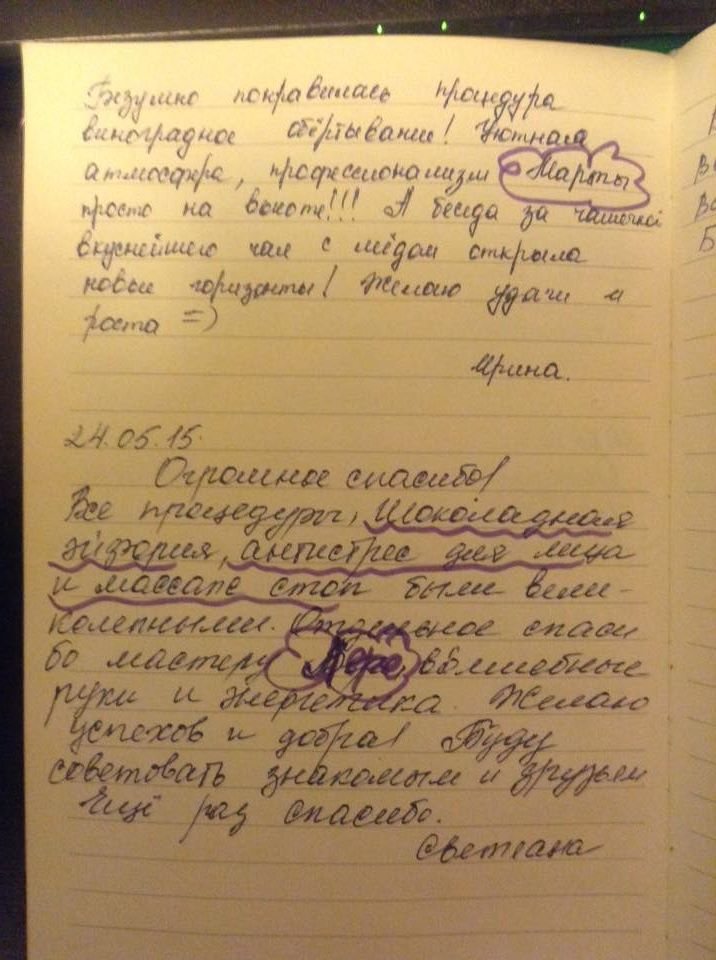 Безумно понравилась процедура
виноградное обёртывание! Уютная
атмосфера, профессионализм Марты
просто на высоте!!! А беседа за чашечкой
вкуснейшего чая с мёдом открыла
новые горизонты! Желаю удачи и
роста =)
Ирина.
24.05.15.
Огромное спасибо!
Все процедуры, Шоколадная
эйфория, антистрес для лица
и массаж стоп были вели-
колепными. Отдельное спаси
бо мастеру волшебные
руки и энергетика. Желаю
успехов и добра! Буду
советовать знакомым и друзьям
Ещё раз спасибо.
Светлана